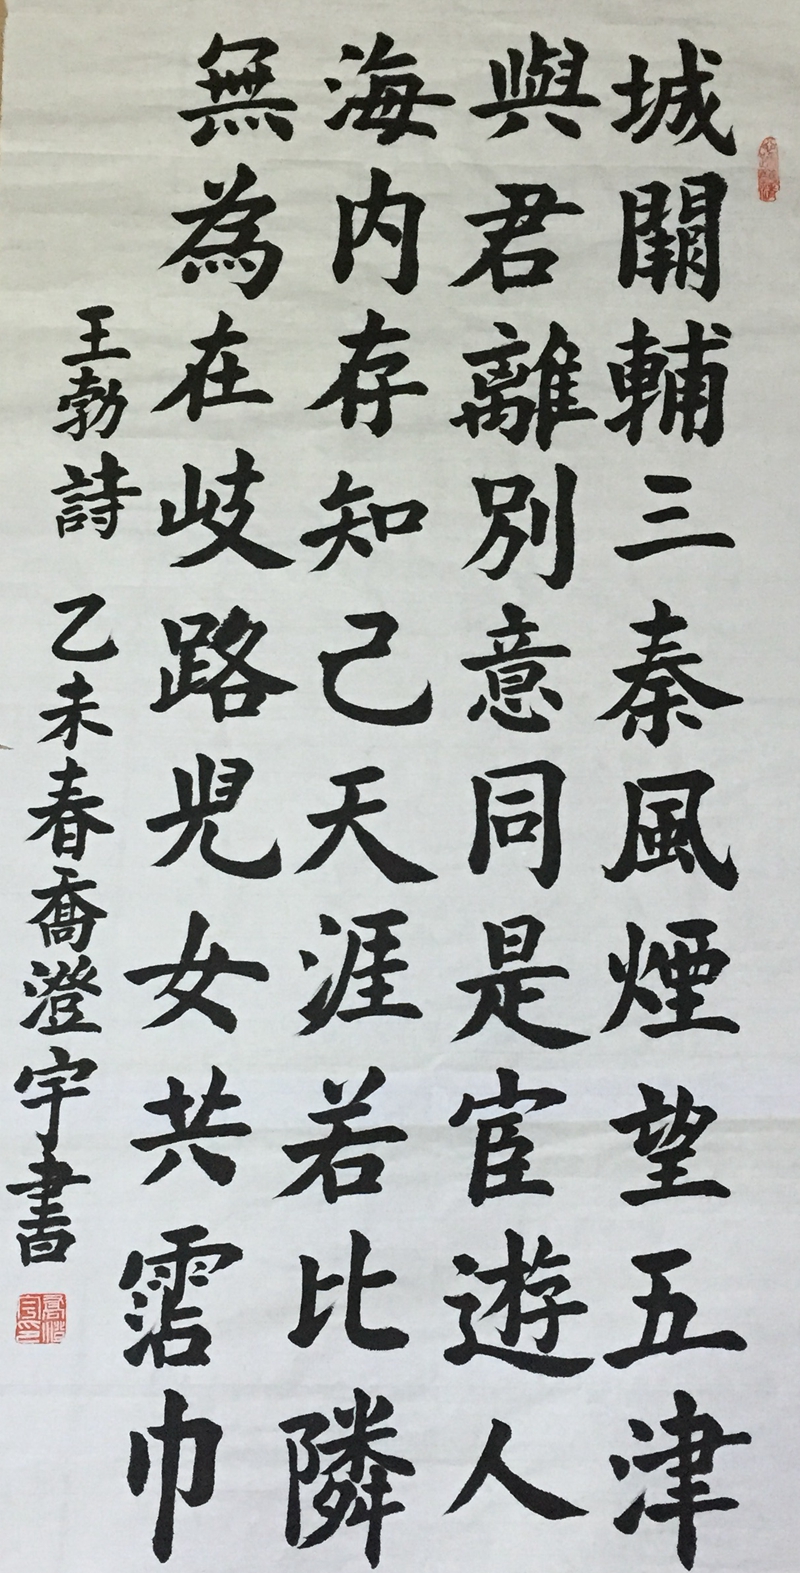 城闕輔三秦風煙望五津
與君離別意同是宦遊人
海内存知己天涯若比隣
無為在歧路兒女共霑巾
王勃詩 乙未春喬澄宇書